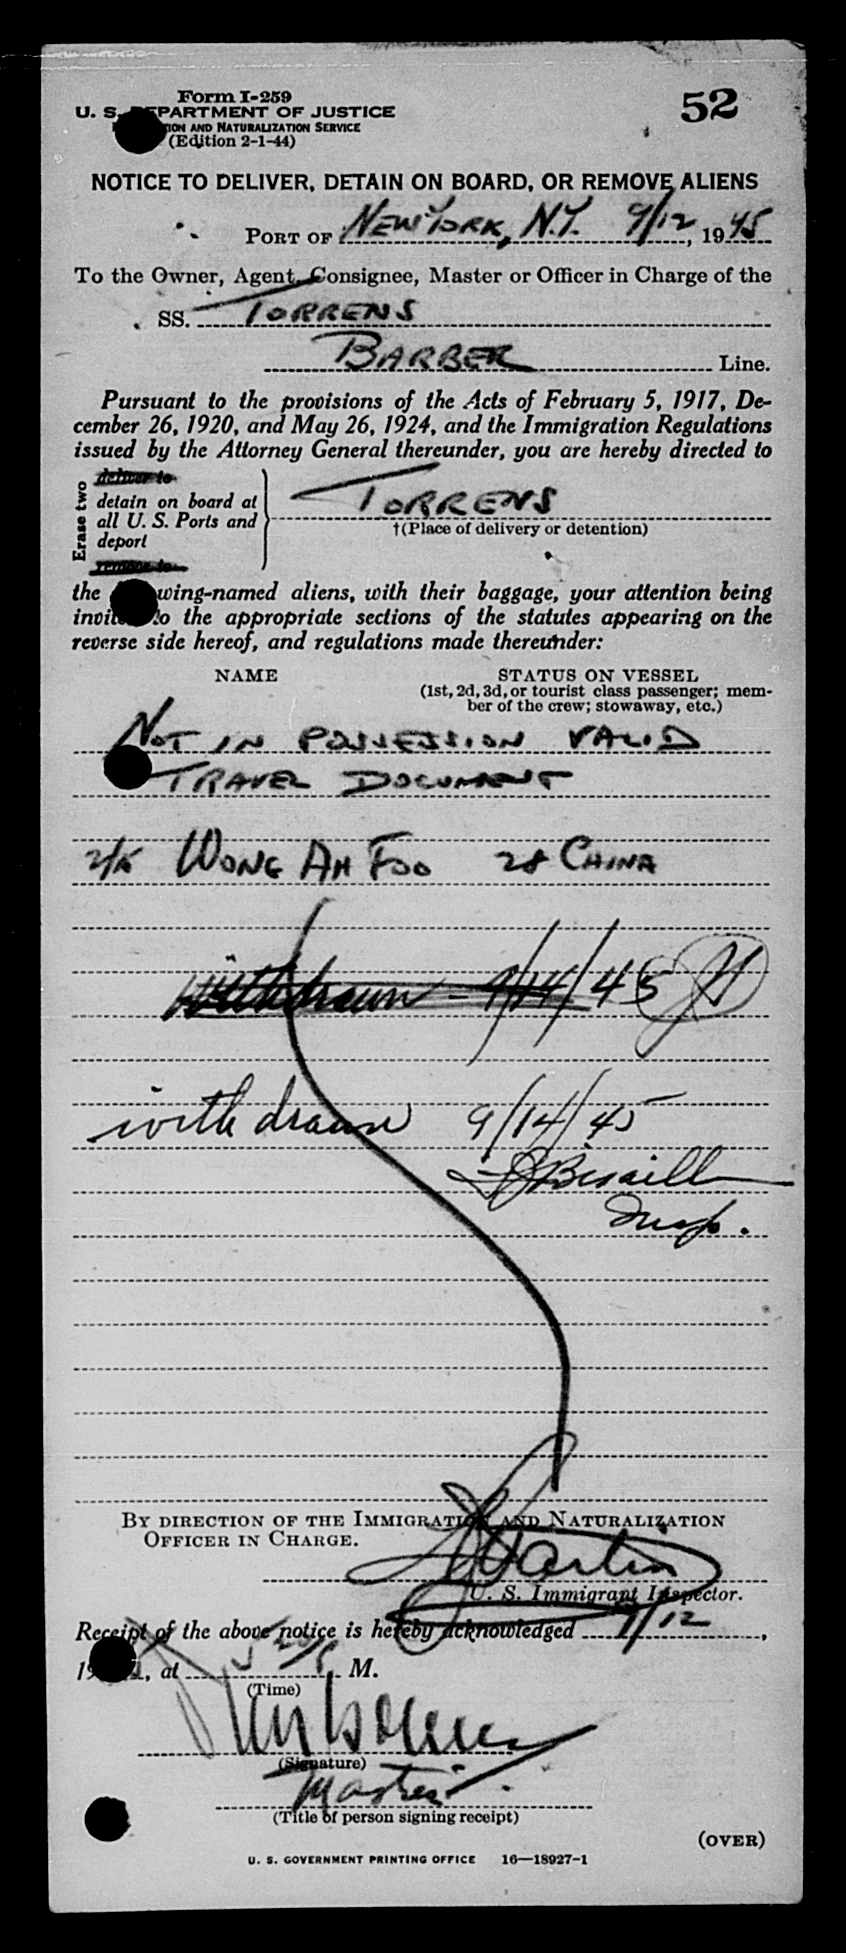 Form I-259
52
U. S. DEPARTMENT OF JUSTICE
ION AND NATURALIZATION SERVICE
(Edition 2-1-44)
NOTICE TO DELIVER, DETAIN ON BOARD, OR REMOVE ALIENS
PORT OF NEW YORK, N.Y. 9/12, 1945
To the Owner, Agent, Consignee, Master or Officer in Charge of the
SS. TORRENS
BARBER Line.
Pursuant to the provisions of the Acts of February 5, 1917, De-
cember 26, 1920, and May 26, 1924, and the Immigration Regulations
issued by the Attorney General thereunder, you are hereby directed to
Erase two
deliver to
detain on board at
all U. S. Ports and
deport
remove to
TORRENS
†(Place of delivery or detention)
the wing-named aliens, with their baggage, your attention being
invite to the appropriate sections of the statutes appearing on the
reverse side hereof, and regulations made thereunder:
NAME STATUS ON VESSEL
(1st, 2d, 3d, or tourist class passenger; mem-
ber of the crew; stowaway, etc.)
NOT IN POSSESSION VALID
TRAVEL DOCUMENT
WONG AH FOO 28 CHINA
withdrawn - 9/14/45
withdrawn 9/14/45
Bisaill
Insp.
BY DIRECTION OF THE IMMIGRATION AND NATURALIZATION
OFFICER IN CHARGE.
Martin
U. S. Immigrant Inspector.
Receipt of the above notice is hereby acknowledged 9/12,
19, at M.
(Time)
(Signature)
Master
(Title of person signing receipt)
(OVER)
U. S. GOVERNMENT PRINTING OFFICE 16—18927-1